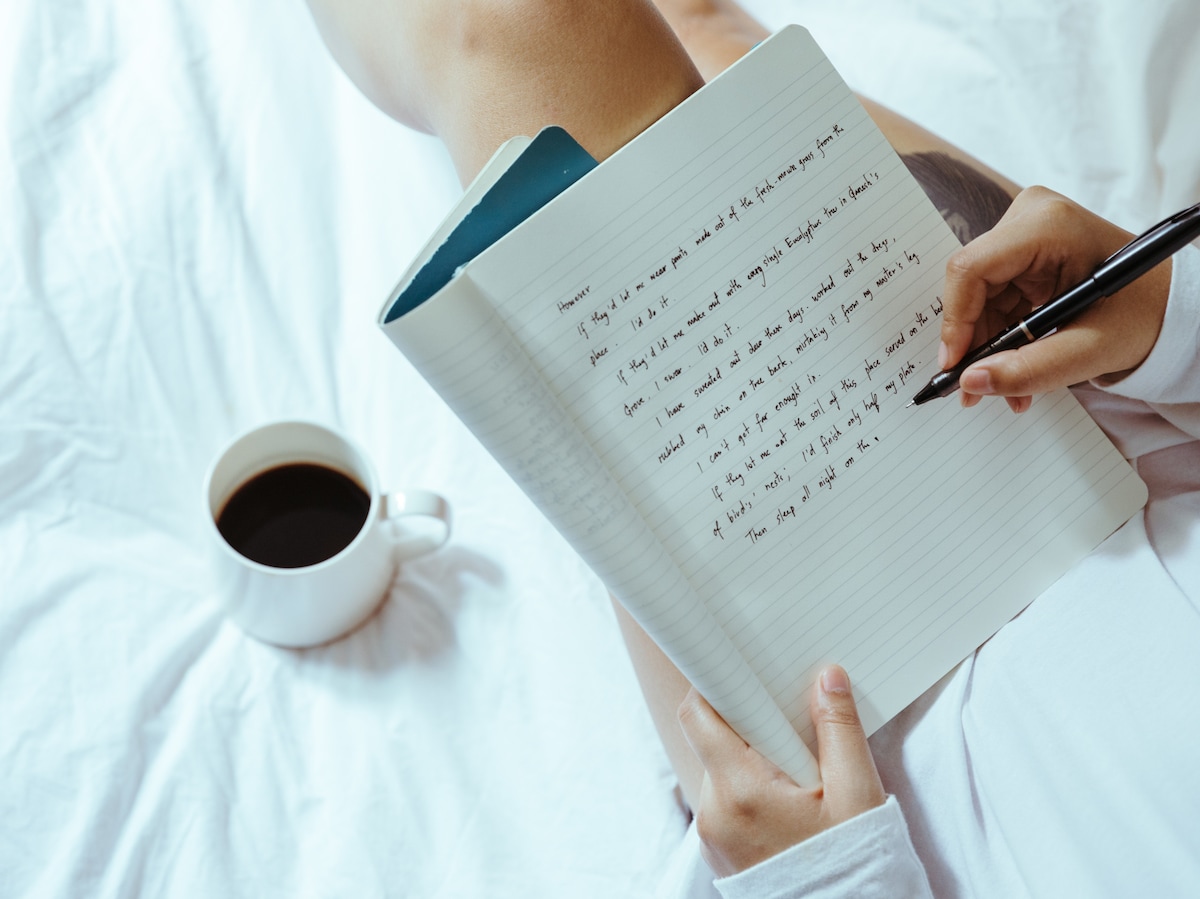 However
If they'd let me wear pants made out of the fresh-mown grass from the
place. I'd do it.
If they'd let me make out with every single Eucalyptus tree in Ganesh's
Grove, I swear I'd do it.
I have sweated out dew these days, worked out the dregs,
rubbed my chin on tree bark, mistaking it from my master's leg
I can't get far enough in.
If they let me eat the soil of this place served on the bed
of bird's nests; I'd finish only half my plate.
Then sleep all night on the